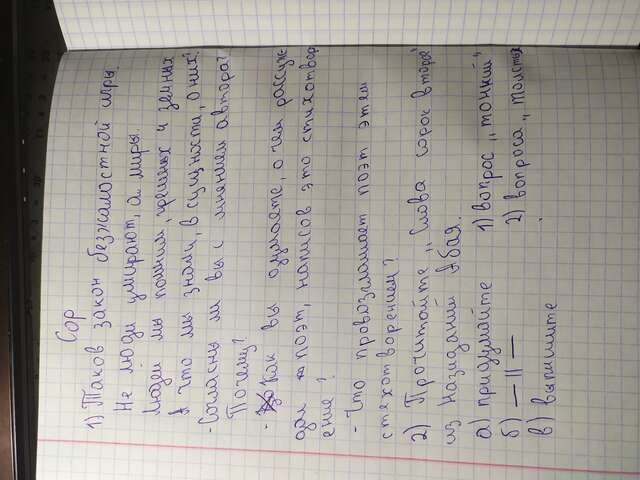 Сор
1) Таков закон безжалостной игры.
Не люди умирают, а миры.
Людей мы помним, грешных и земных
А что мы знали, в сущности, о них?
- Согласны ли вы с мнением автора?
Почему?
- Как вы думаете, о чем рассуж
дал поэт, написав это стихотвор
ение?
- Что провозглашает поэт этем
стехотворением?
2) Прочитайте „Слова сорок второе"
из Назидании Абая.
а) придумайте 1) вопрос „тонкий"
б) — || — 2) вопроса „толстых
в) выпишите